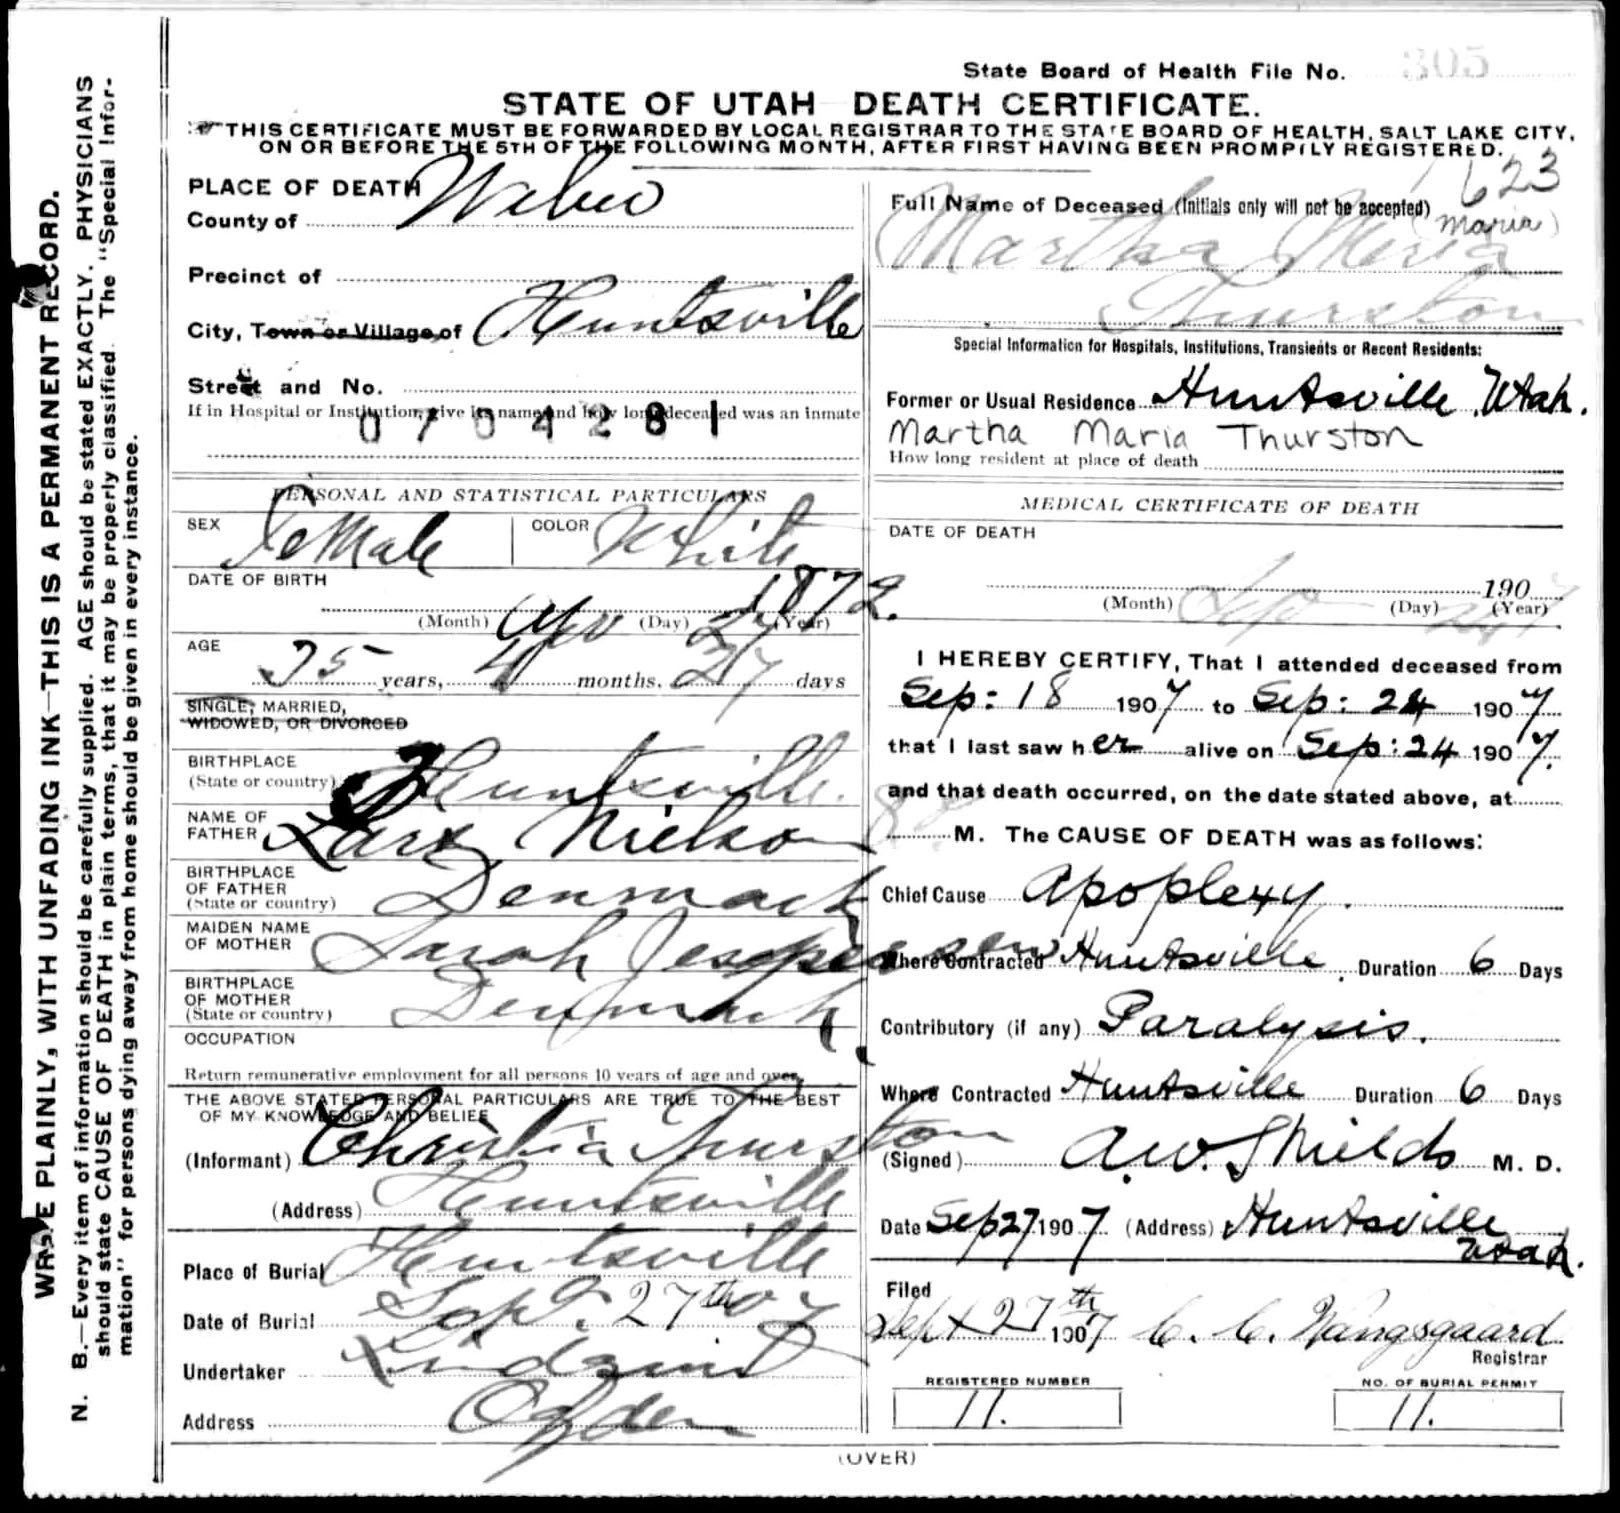 State Board of Health File No. 305
STATE OF UTAH DEATH CERTIFICATE.
THIS CERTIFICATE MUST BE FORWARDED BY LOCAL REGISTRAR TO THE STATE BOARD OF HEALTH, SALT LAKE CITY,
ON OR BEFORE THE 5TH OF THE FOLLOWING MONTH, AFTER FIRST HAVING BEEN PROMPTLY REGISTERED.
WRITE PLAINLY, WITH UNFADING INK—THIS IS A PERMANENT RECORD.
N. B.—Every item of information should be carefully supplied. AGE should be stated EXACTLY. PHYSICIANS
should state CAUSE OF DEATH in plain terms, that it may be properly classified. The "Special Infor-
mation" for persons dying away from home should be given in every instance.
PLACE OF DEATH
County of Weber
Precinct of
City, Town or Village, of Huntsville
Street and No.
If in Hospital or Institution, give its name and how long deceased was an inmate
0704281
PERSONAL AND STATISTICAL PARTICULARS
SEX Female COLOR White
DATE OF BIRTH 1872.
(Month) Apr (Day) 27 (Year)
AGE
35 years, 4 months, 27 days
SINGLE, MARRIED,
WIDOWED, OR DIVORCED
BIRTHPLACE
(State or country) Huntsville.
NAME OF
FATHER Lars Nielson
BIRTHPLACE
OF FATHER
(State or country) Denmark
MAIDEN NAME
OF MOTHER Sarah Jespersen
BIRTHPLACE
OF MOTHER
(State or country) Denmark
OCCUPATION
Return remunerative employment for all persons 10 years of age and over
THE ABOVE STATED PERSONAL PARTICULARS ARE TRUE TO THE BEST
OF MY KNOWLEDGE AND BELIEF
(Informant) Thurston
(Address) Huntsville
Place of Burial Huntsville
Date of Burial Sept. 27th 07
Undertaker Lindquist
Address Ogden
623
Full Name of Deceased (Initials only will not be accepted)
(Maria)
Martha Meria
Thurston
Special Information for Hospitals, Institutions, Transients or Recent Residents:
Former or Usual Residence Huntsville Utah.
Martha Maria Thurston
How long resident at place of death
MEDICAL CERTIFICATE OF DEATH
DATE OF DEATH
1907
(Month) Sep (Day) 24 (Year)
I HEREBY CERTIFY, That I attended deceased from
Sep: 18 1907 to Sep: 24 1907
that I last saw her alive on Sep: 24 1907.
and that death occurred, on the date stated above, at
M. The CAUSE OF DEATH was as follows:
Chief Cause Apoplexy.
Where Contracted Huntsville. Duration 6 Days
Contributory (if any) Paralysis.
Where Contracted Huntsville Duration 6 Days
(Signed) A.W. Shields M. D.
Date Sep 27 1907 (Address) Huntsville
Utah.
Filed
Sept 27th 1907 C. C. Wangsgaard
Registrar
REGISTERED NUMBER
11.
NO. OF BURIAL PERMIT
11.
(OVER)